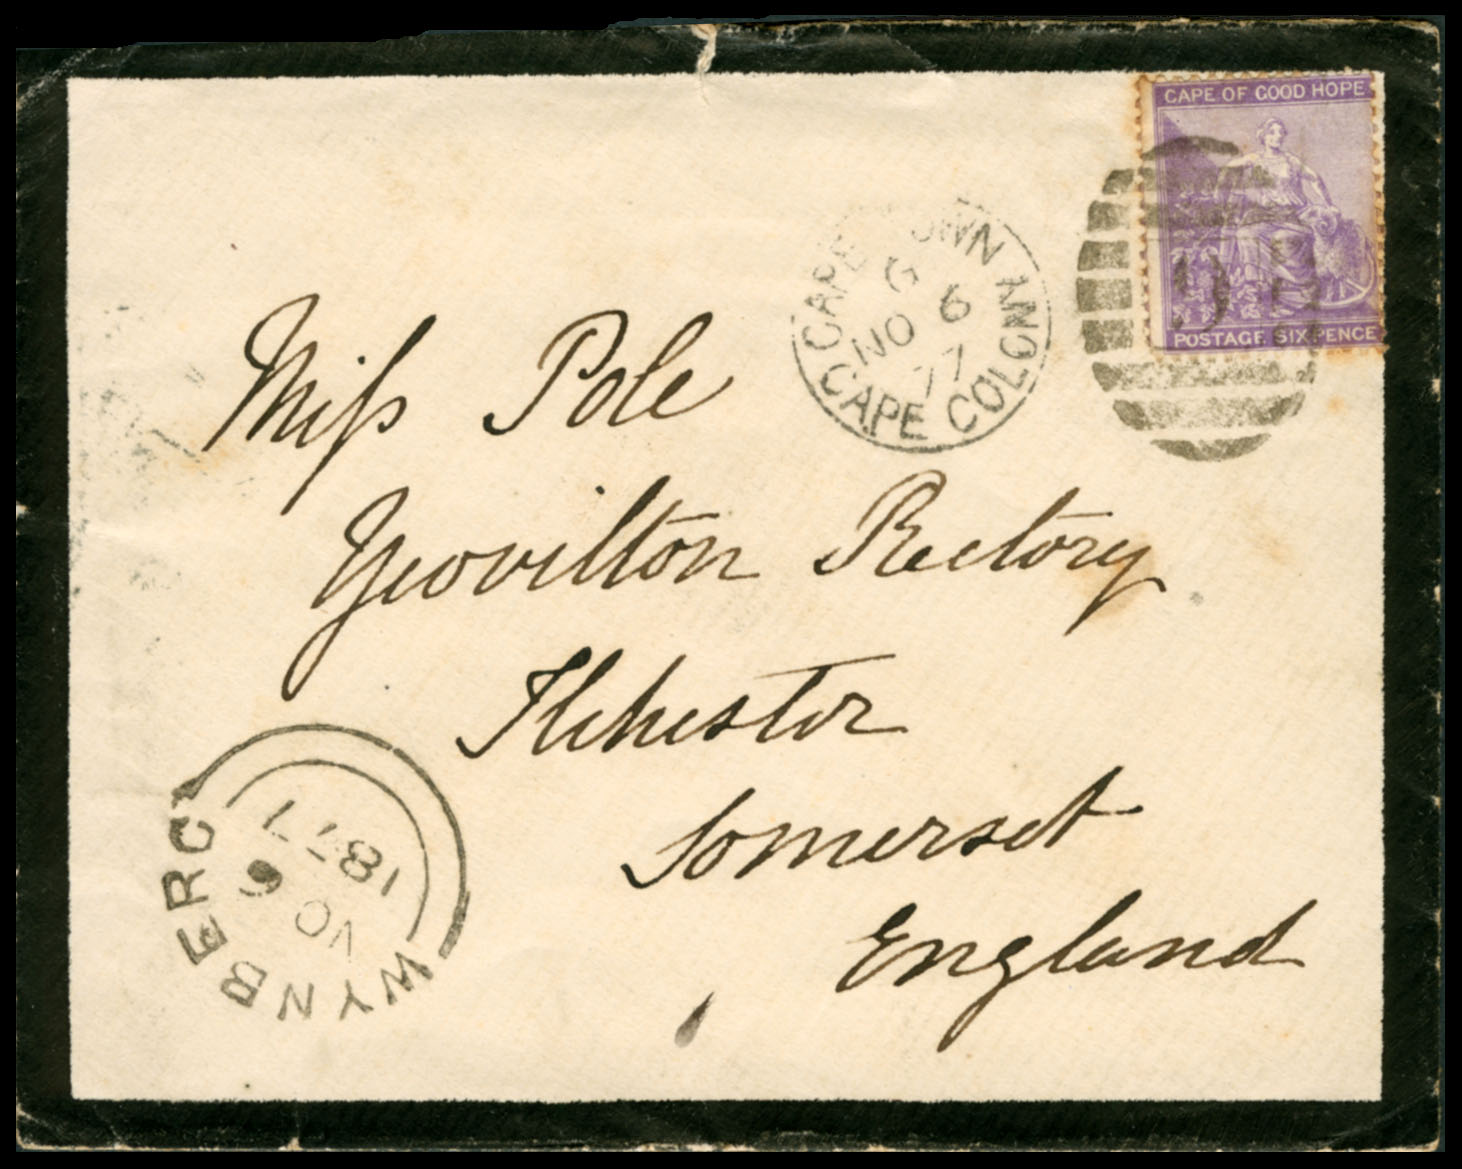 CAPE OF GOOD HOPE
POSTAGE SIXPENCE
CAPE TOWN
G
NO 6
77
CAPE COLONY
Miſs Pole
Yeovilton Rectory
Ilchester
Somerset
England
WYNBERG
NO 6
1877